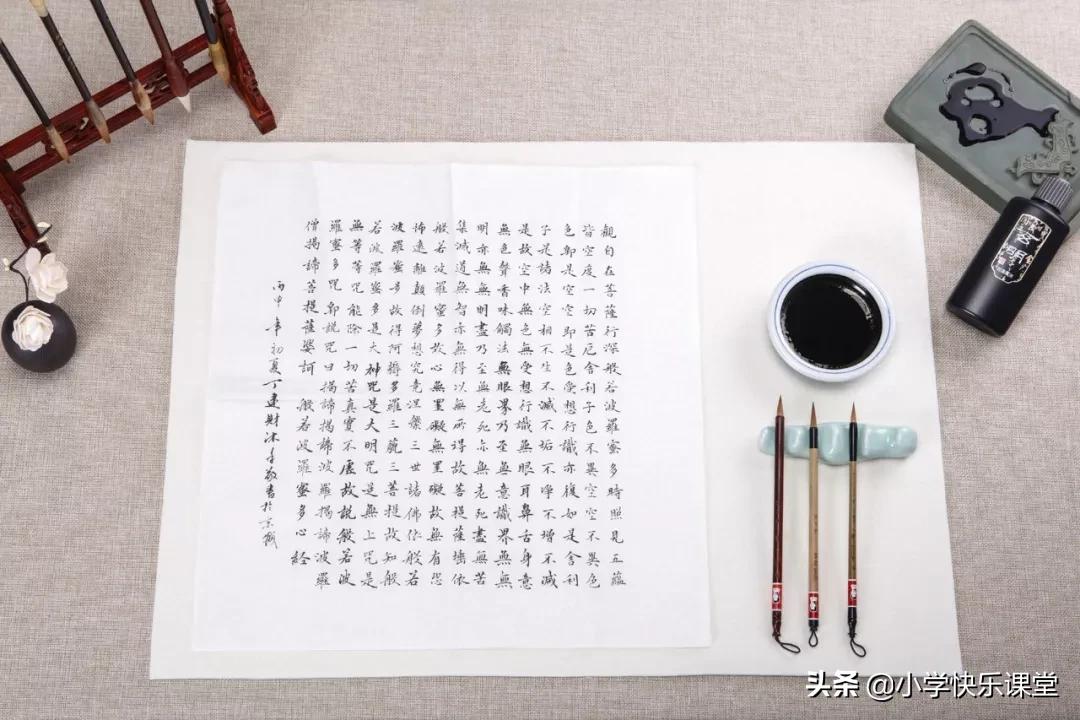 觀自在菩薩行深般若波羅蜜多時照見五蘊
皆空度一切苦厄舍利子色不異空空不異色
色即是空空即是色受想行識亦復如是舍利
子是諸法空相不生不滅不垢不淨不增不減
是故空中無色無受想行識無眼耳鼻舌身意
無色聲香味觸法無眼界乃至無意識界無無
明亦無無明盡乃至無老死亦無老死盡無苦
集滅道無智亦無得以無所得故菩提薩埵依
般若波羅蜜多故心無罣礙無罣礙故無有恐
怖遠離顛倒夢想究竟涅槃三世諸佛依般若
波羅蜜多故得阿耨多羅三藐三菩提故知般
若波羅蜜多是大神咒是大明咒是無上咒是
無等等咒能除一切苦真實不虛故說般若波
羅蜜多咒即說咒曰揭諦揭諦波羅揭諦波羅
僧揭諦菩提薩婆訶 般若波羅蜜多心經
丙申年初夏丁建財沐手敬書於京城
头条 @小学快乐课堂